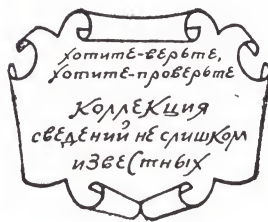 хотите-верьте,
хотите-проверьте
Коллекция
сведений не слишком
известных